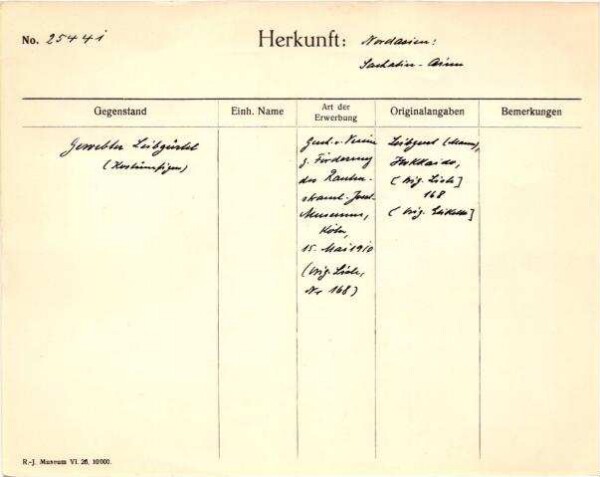 No. 25441
Herkunft: Nordasien:
Sachalin - Ainu
Gegenstand
Einh. Name
Art der
Erwerbung
Originalangaben
Bemerkungen
Gewebter Leibgürtel
(Kostümfigur)
Gesch. v. Verein
z. Förderung
des Rauten-
strauch-Joest-
Museums,
Köln,
15. Mai 1910
(Orig. Liste,
Nr 168)
Leibgurt (Mann),
Hokkaido,
[Orig. Liste]
168
[Orig. Etikette]
R.-J. Museum VI. 26. 10000.